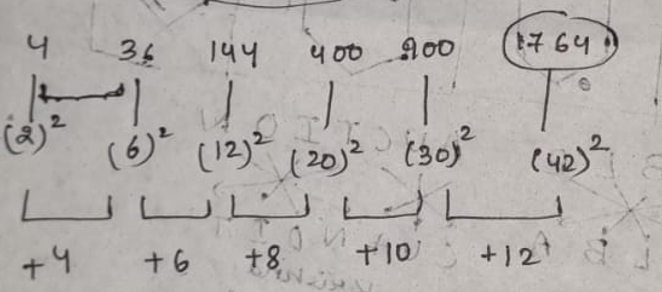 4 36 144 400 900 1764
(2)² (6)² (12)² (20)² (30)² (42)²
+4 +6 +8 +10 +12